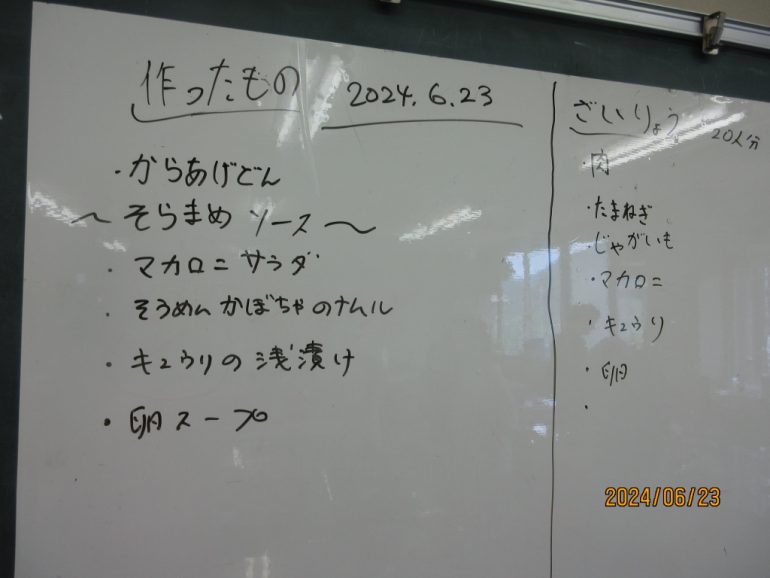 作ったもの 2024.6.23
・からあげどん
〜そらまめ ソース〜
・マカロニ サラダ
・そうめんかぼちゃのナムル
・キュウリの浅漬け
・卵スープ
ざいりょう 20人分
・肉
・たまねぎ
・じゃがいも
・マカロニ
・キュウリ
・卵
・
2024/06/23